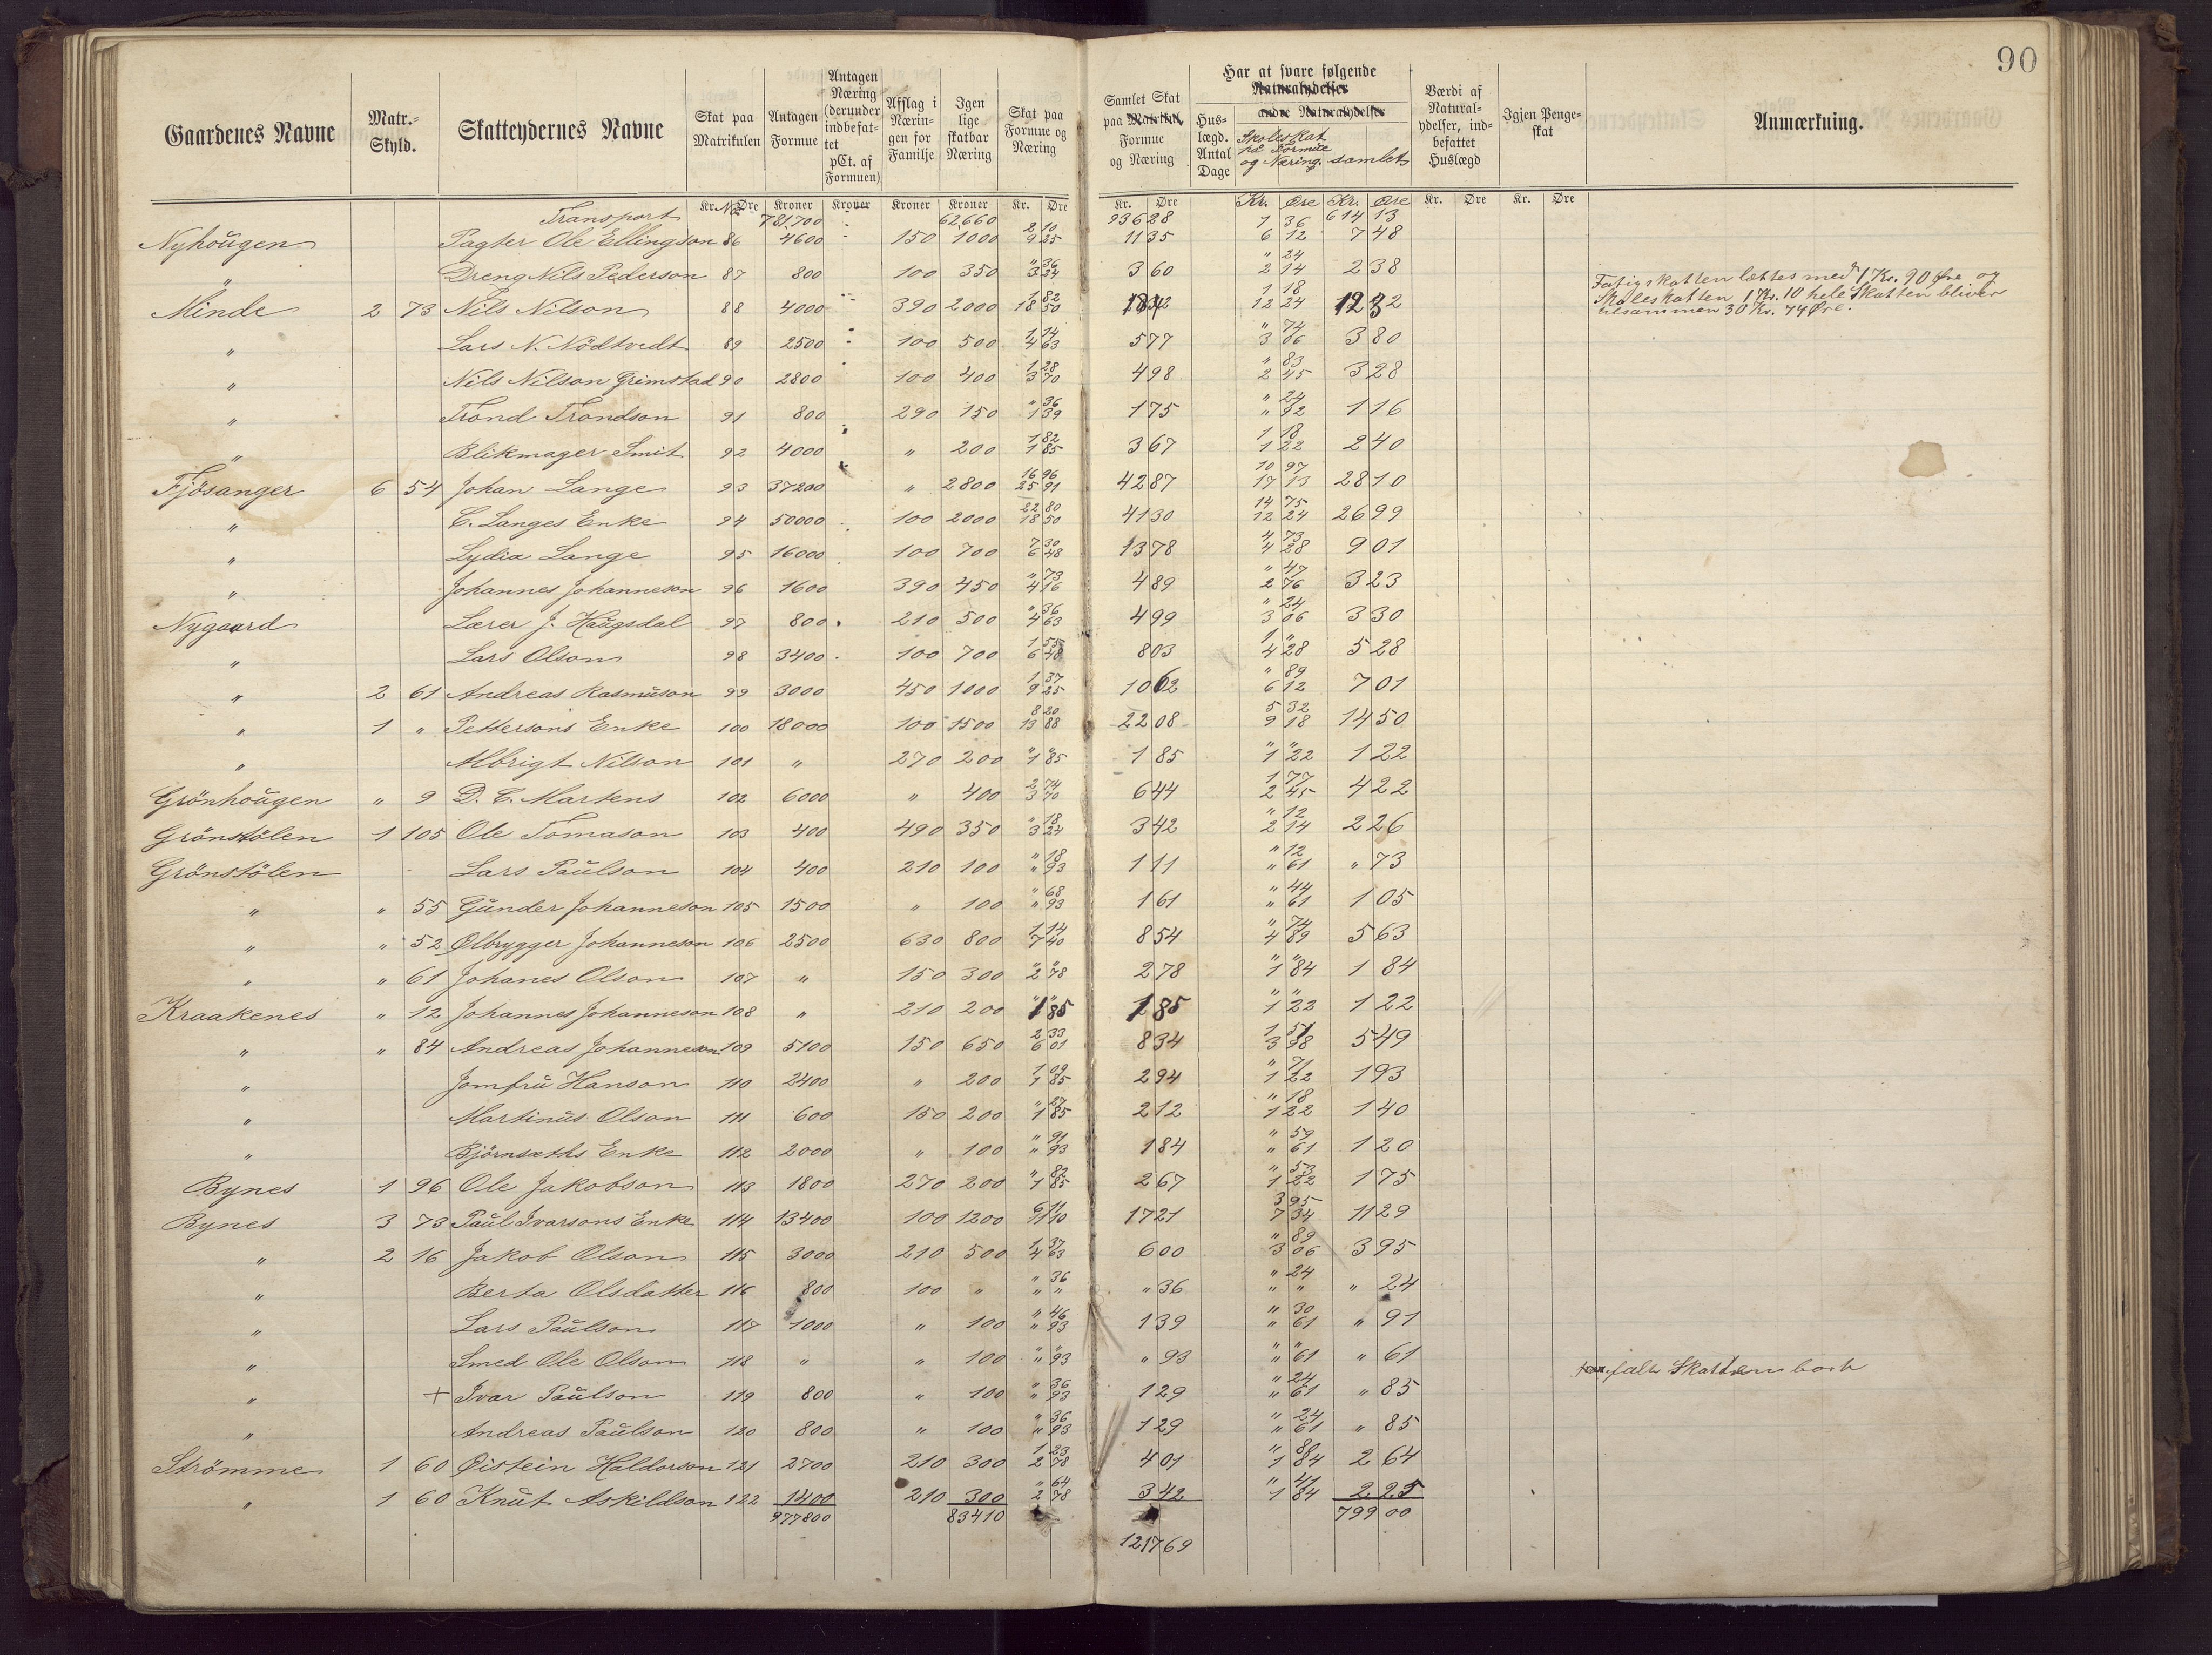 90
Gaardenes Navne | Matr.-Skyld. | Skatteydernes Navne | Skat paa Matrikulen | Antagen Formue | Antagen Næring (derunder indbefattet pCt. af Formuen) | Afslag i Næringen for Familje | Igen lige skatbar Næring | Skat paa Formue og Næring | Samlet Skat paa Matrikul, Formue og Næring | Har at svare følgende Naturalydelser | Huslægd. Antal Dage | andre Naturalydelser Skoleskat paa Formue og Næring. samlet | Værdi af Naturalydelser, indbefattet Huslægd | Igjen Pengeskat | Anmærkning.
Kr. No Øre | Kroner | Kroner | Kroner | Kroner | Kr. Øre | Kr. Øre | Kr. Øre | Kr. Øre | Kr. Øre | Kr. Øre
Transport 781,700 62,660 936 28 614 13
Nyhougen Pagter Ole Ellingson 86 4600 150 1000 2 10 9 25 11 35 1 36 6 12 7 48
" Dreng Nils Pederson 87 800 100 350 " 36 3 24 3 60 " 24 2 14 2 38
Minde 2 73 Nils Nilson 88 4000 390 2000 1 82 18 50 1 18 12 24
Fatigskatten lettes med 1 Kr. 90 Øre og
Skoleskatten 1 Kr. 10 hele Skatten bliver
tilsammen 30 Kr. 74 Øre.
" Lars N. Nödtvedt 89 2500 100 500 1 14 4 63 5 77 " 74 3 06 3 80
" Nils Nilson Grimstad 90 2800 100 400 1 28 3 70 4 98 " 83 2 45 3 28
" Trond Trondson 91 800 290 150 " 36 1 39 1 75 " 24 " 92 1 16
" Blikmager Smit 92 4000 " 200 1 82 1 85 3 67 1 18 1 22 2 40
Fjösanger 6 54 Johan Lange 93 37200 " 2800 16 96 25 91 42 87 10 97 17 13 28 10
" C. Langes Enke 94 50000 100 2000 22 80 18 50 41 30 14 75 12 24 26 99
" Lydia Lange 95 16000 100 700 7 30 6 48 13 78 4 73 4 28 9 01
" Johannes Johanneson 96 1600 390 450 " 73 4 16 4 89 " 47 2 76 3 23
Nygaard Lærer J. Haugsdal 97 800 210 500 " 36 4 63 4 99 " 24 3 06 3 30
" Lars Olson 98 3400 100 700 1 55 6 48 8 03 1 " 4 28 5 28
" 2 61 Andreas Rasmuson 99 3000 450 1000 1 37 9 25 10 62 " 89 6 12 7 01
" 1 " Pettersons Enke 100 18000 100 1500 8 20 13 88 22 08 5 32 9 18 14 50
" Albrigt Nilson 101 " 270 200 " " 1 85 1 85 " " 1 22 1 22
Grönhougen " 9 D. C. Martens 102 6000 " 400 2 74 3 70 6 44 1 77 2 45 4 22
Grönstölen 1 105 Ole Tomason 103 400 490 350 " 18 3 24 3 42 " 12 2 14 2 26
Grönstölen Lars Paulson 104 400 210 100 " 18 " 93 1 11 " 12 " 61 " 73
" " 55 Gunder Johanneson 105 1500 " 100 " 68 " 93 1 61 " 44 " 61 1 05
" " 52 Ølbrygger Johanneson 106 2500 630 800 1 14 7 40 8 54 " 74 4 89 5 63
" " 61 Johanes Olson 107 " 150 300 " " 2 78 2 78 " " 1 84 1 84
Kraakenes " 12 Johannes Johanneson 108 " 210 200 " " 1 85 1 85 " " 1 22 1 22
" " 84 Andreas Johanneson 109 5100 150 650 2 33 6 01 8 34 1 51 3 98 5 49
" Jomfru Hanson 110 2400 " 200 1 09 1 85 2 94 " 71 1 22 1 93
" Martinus Olson 111 600 150 200 " 27 1 85 2 12 " 18 1 22 1 40
" Björnsæths Enke 112 2000 " 100 " 91 " 93 1 84 " 59 " 61 1 20
Bynes 1 96 Ole Jakobson 113 1800 270 200 " 82 1 85 2 67 " 53 1 22 1 75
Bynes 3 73 Paul Ivarsons Enke 114 13400 100 1200 6 11 11 10 17 21 3 95 7 34 11 29
" 2 16 Jakob Olson 115 3000 210 500 1 37 4 63 6 00 " 89 3 06 3 95
" Berta Olsdatter 116 800 100 " " 36 " " " 36 " 24 " " " 24
" Lars Paulson 117 1000 " 100 " 46 " 93 1 39 " 30 " 61 " 91
" Smed Ole Olson 118 " " 100 " " " 93 " 93 " " " 61 " 61
" + Ivar Paulson 119 800 " 100 " 36 " 93 1 29 " 24 " 61 " 85 falder Skatten bort
" Andreas Paulson 120 800 " 100 " 36 " 93 1 29 " 24 " 61 " 85
Strömme 1 60 Øistein Haldorson 121 2700 210 300 1 23 2 78 4 01 " 80 1 84 2 64
" 1 60 Knut Askildson 122 1400 210 300 " 64 2 78 3 42 " 41 1 84 2 25
977800 83410 799 00
1217 69